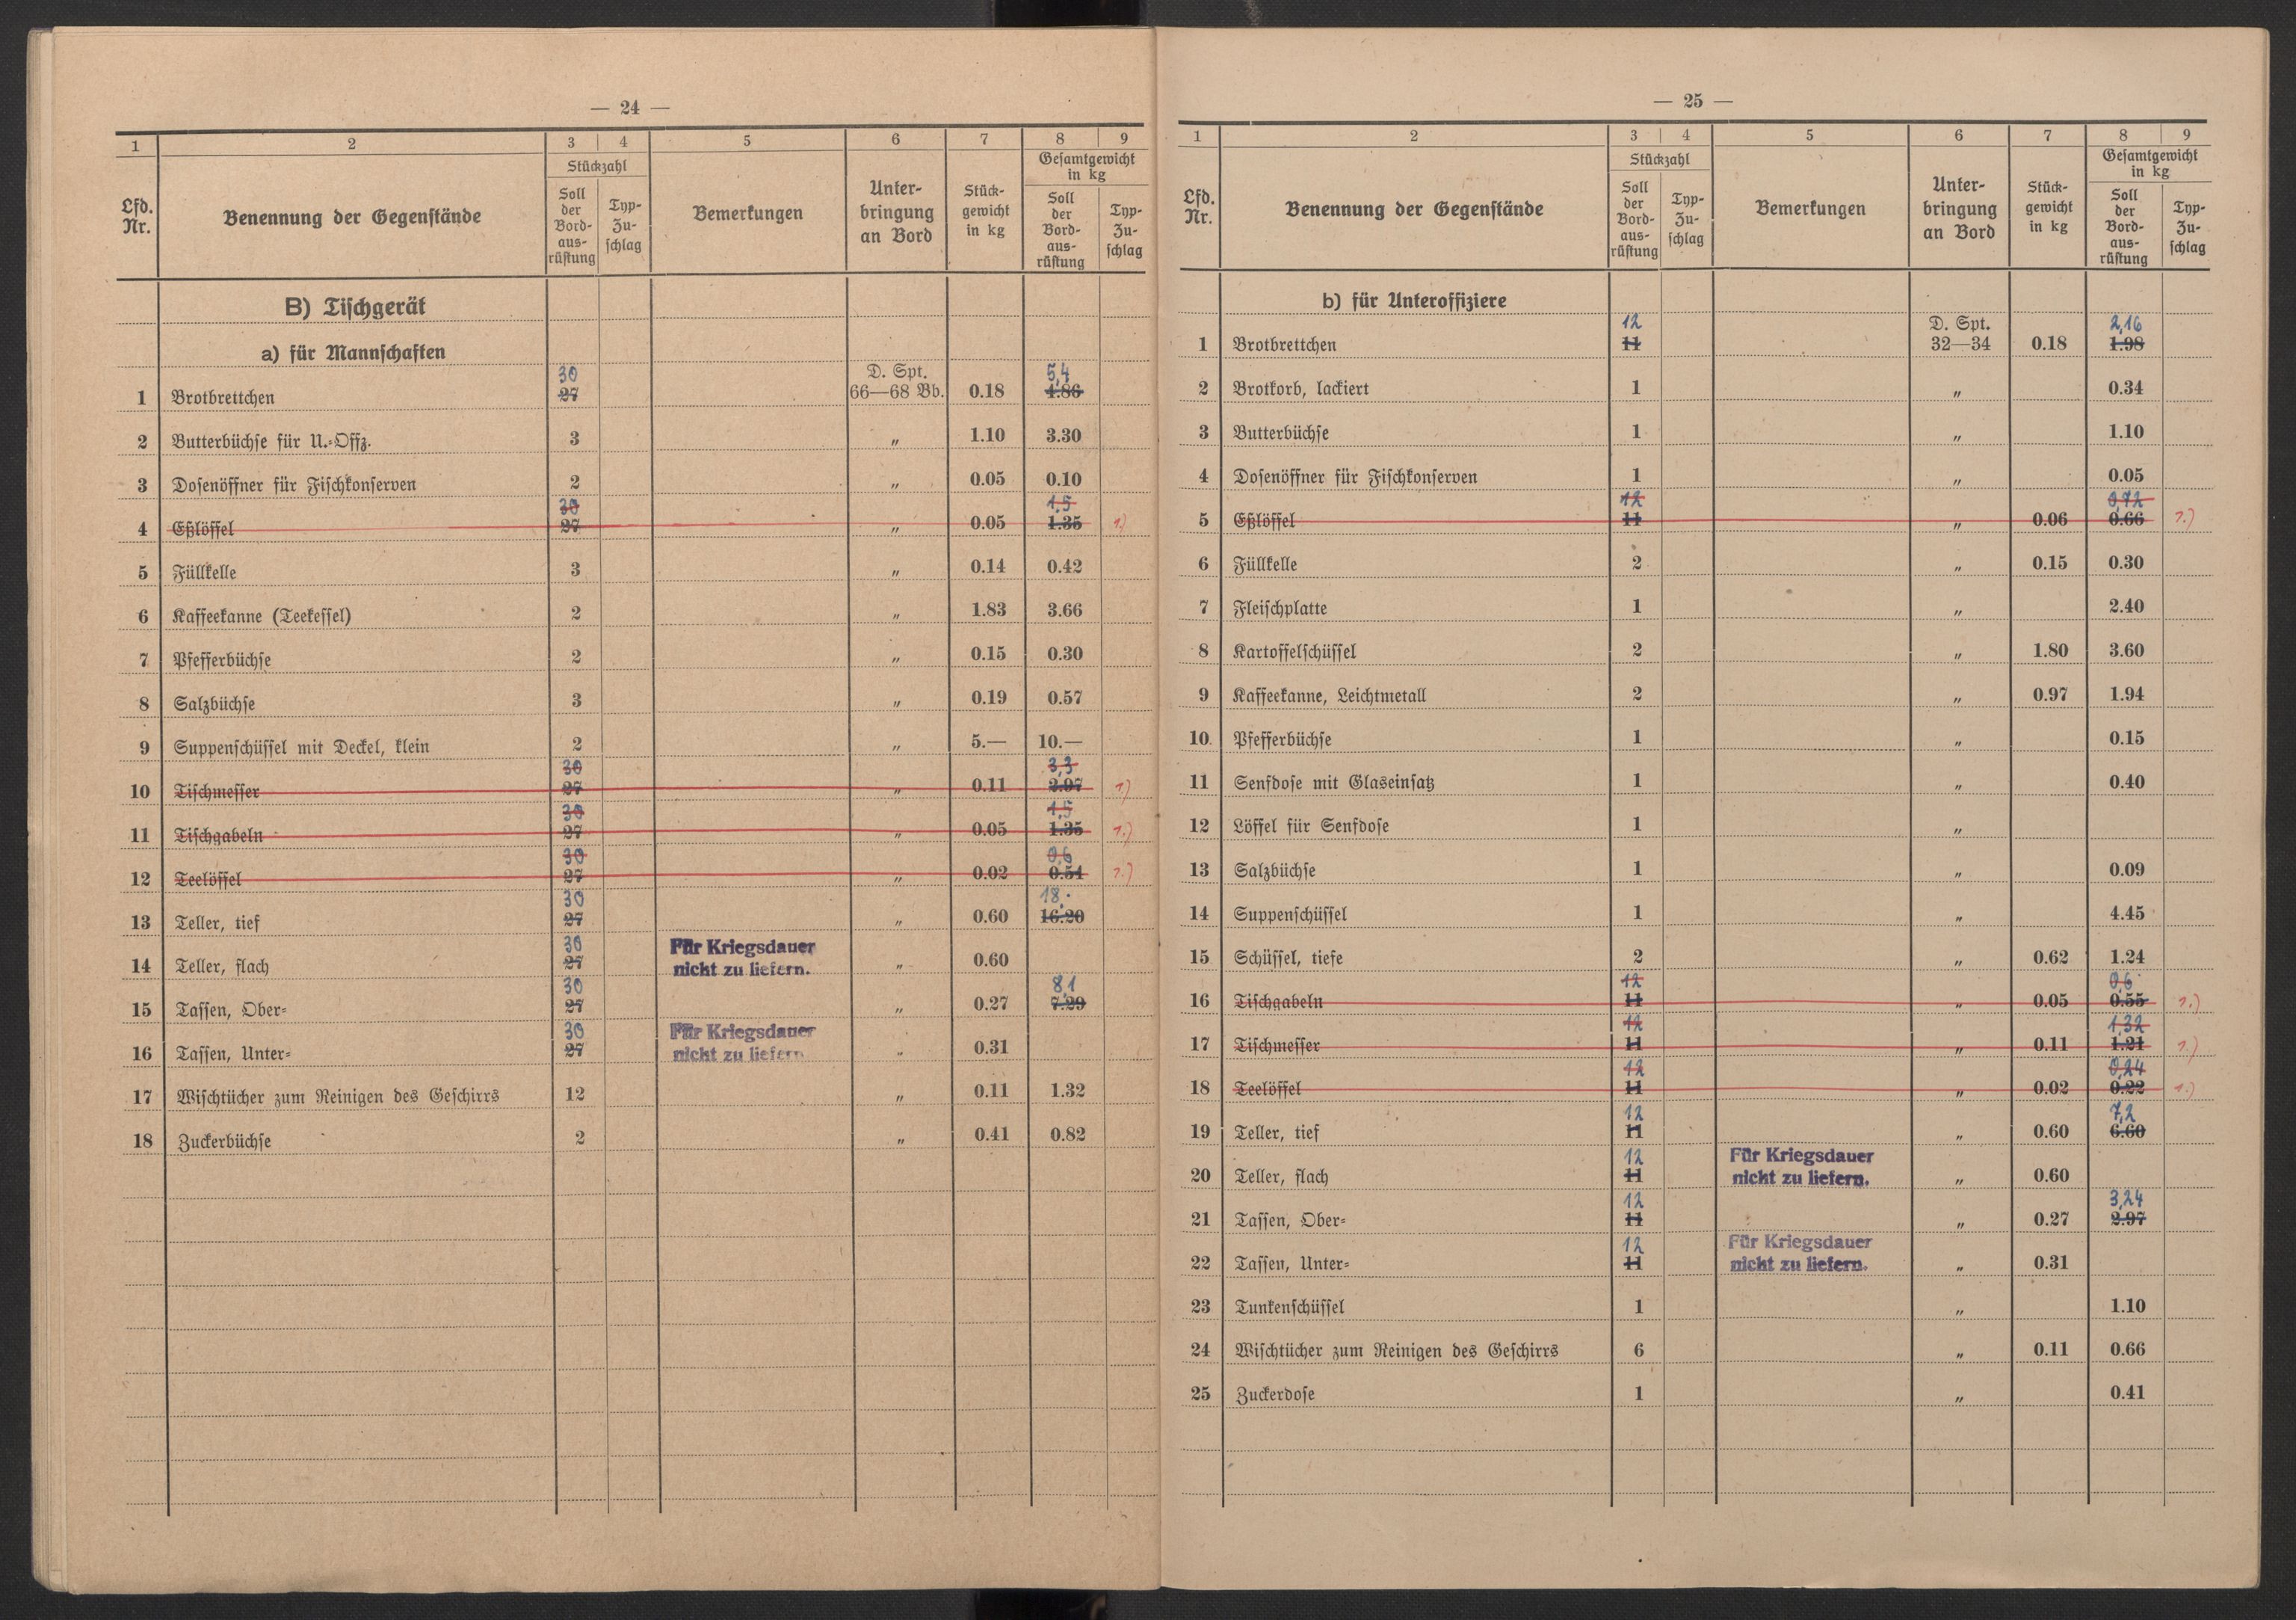 — 24 —
1 2 3 4 5 6 7 8 9
Lfd. Nr. Benennung der Gegenstände Stückzahl Soll der Bord-ausrüstung Typ-Zu-schlag Bemerkungen Unter-bringung an Bord Stück-gewicht in kg Gesamtgewicht in kg Soll der Bord-ausrüstung Typ-Zu-schlag
B) Tischgerät
a) für Mannschaften
30 D. Spt. 5,4
1 Brotbrettchen 27 66—68 Bb. 0.18 4.86
2 Butterbüchse für U.=Offz. 3 " 1.10 3.30
3 Dosenöffner für Fischkonserven 2 " 0.05 0.10
30 1.5
4 Eßlöffel 27 " 0.05 1.35 1.)
5 Füllkelle 3 " 0.14 0.42
6 Kaffeekanne (Teekessel) 2 " 1.83 3.66
7 Pfefferbüchse 2 " 0.15 0.30
8 Salzbüchse 3 " 0.19 0.57
9 Suppenschüssel mit Deckel, klein 2 " 5.— 10.—
30 3,3
10 Tischmesser 27 " 0.11 2.97 1.)
30 1.5
11 Tischgabeln 27 " 0.05 1.35 1.)
30 0,6
12 Teelöffel 27 " 0.02 0.54 1.)
30 18.-
13 Teller, tief 27 " 0.60 16.20
30 Für Kriegsdauer
14 Teller, flach 27 nicht zu liefern. " 0.60
30 8,1
15 Tassen, Ober= 27 " 0.27 7.29
30 Für Kriegsdauer
16 Tassen, Unter= 27 nicht zu liefern. " 0.31
17 Wischtücher zum Reinigen des Geschirrs 12 " 0.11 1.32
18 Zuckerbüchse 2 " 0.41 0.82
— 25 —
1 2 3 4 5 6 7 8 9
Lfd. Nr. Benennung der Gegenstände Stückzahl Soll der Bord-ausrüstung Typ-Zu-schlag Bemerkungen Unter-bringung an Bord Stück-gewicht in kg Gesamtgewicht in kg Soll der Bord-ausrüstung Typ-Zu-schlag
b) für Unteroffiziere
12 D. Spt. 2,16
1 Brotbrettchen 11 32—34 0.18 1.98
2 Brotkorb, lackiert 1 " 0.34
3 Butterbüchse 1 " 1.10
4 Dosenöffner für Fischkonserven 1 " 0.05
12 0,72
5 Eßlöffel 11 " 0.06 0.66 1.)
6 Füllkelle 2 " 0.15 0.30
7 Fleischplatte 1 " 2.40
8 Kartoffelschüssel 2 " 1.80 3.60
9 Kaffeekanne, Leichtmetall 2 " 0.97 1.94
10 Pfefferbüchse 1 " 0.15
11 Senfdose mit Glaseinsatz 1 " 0.40
12 Löffel für Senfdose 1 "
13 Salzbüchse 1 " 0.09
14 Suppenschüssel 1 " 4.45
15 Schüssel, tiefe 2 " 0.62 1.24
12 0,6
16 Tischgabeln 11 " 0.05 0.55 1.)
12 1,32
17 Tischmesser 11 " 0.11 1.21 1.)
12 0,24
18 Teelöffel 11 " 0.02 0.22 1.)
12 7,2
19 Teller, tief 11 " 0.60 6.60
12 Für Kriegsdauer
20 Teller, flach 11 nicht zu liefern. " 0.60
12 3,24
21 Tassen, Ober= 11 " 0.27 2.97
12 Für Kriegsdauer
22 Tassen, Unter= 11 nicht zu liefern. " 0.31
23 Tunkenschüssel 1 " 1.10
24 Wischtücher zum Reinigen des Geschirrs 6 " 0.11 0.66
25 Zuckerdose 1 " 0.41